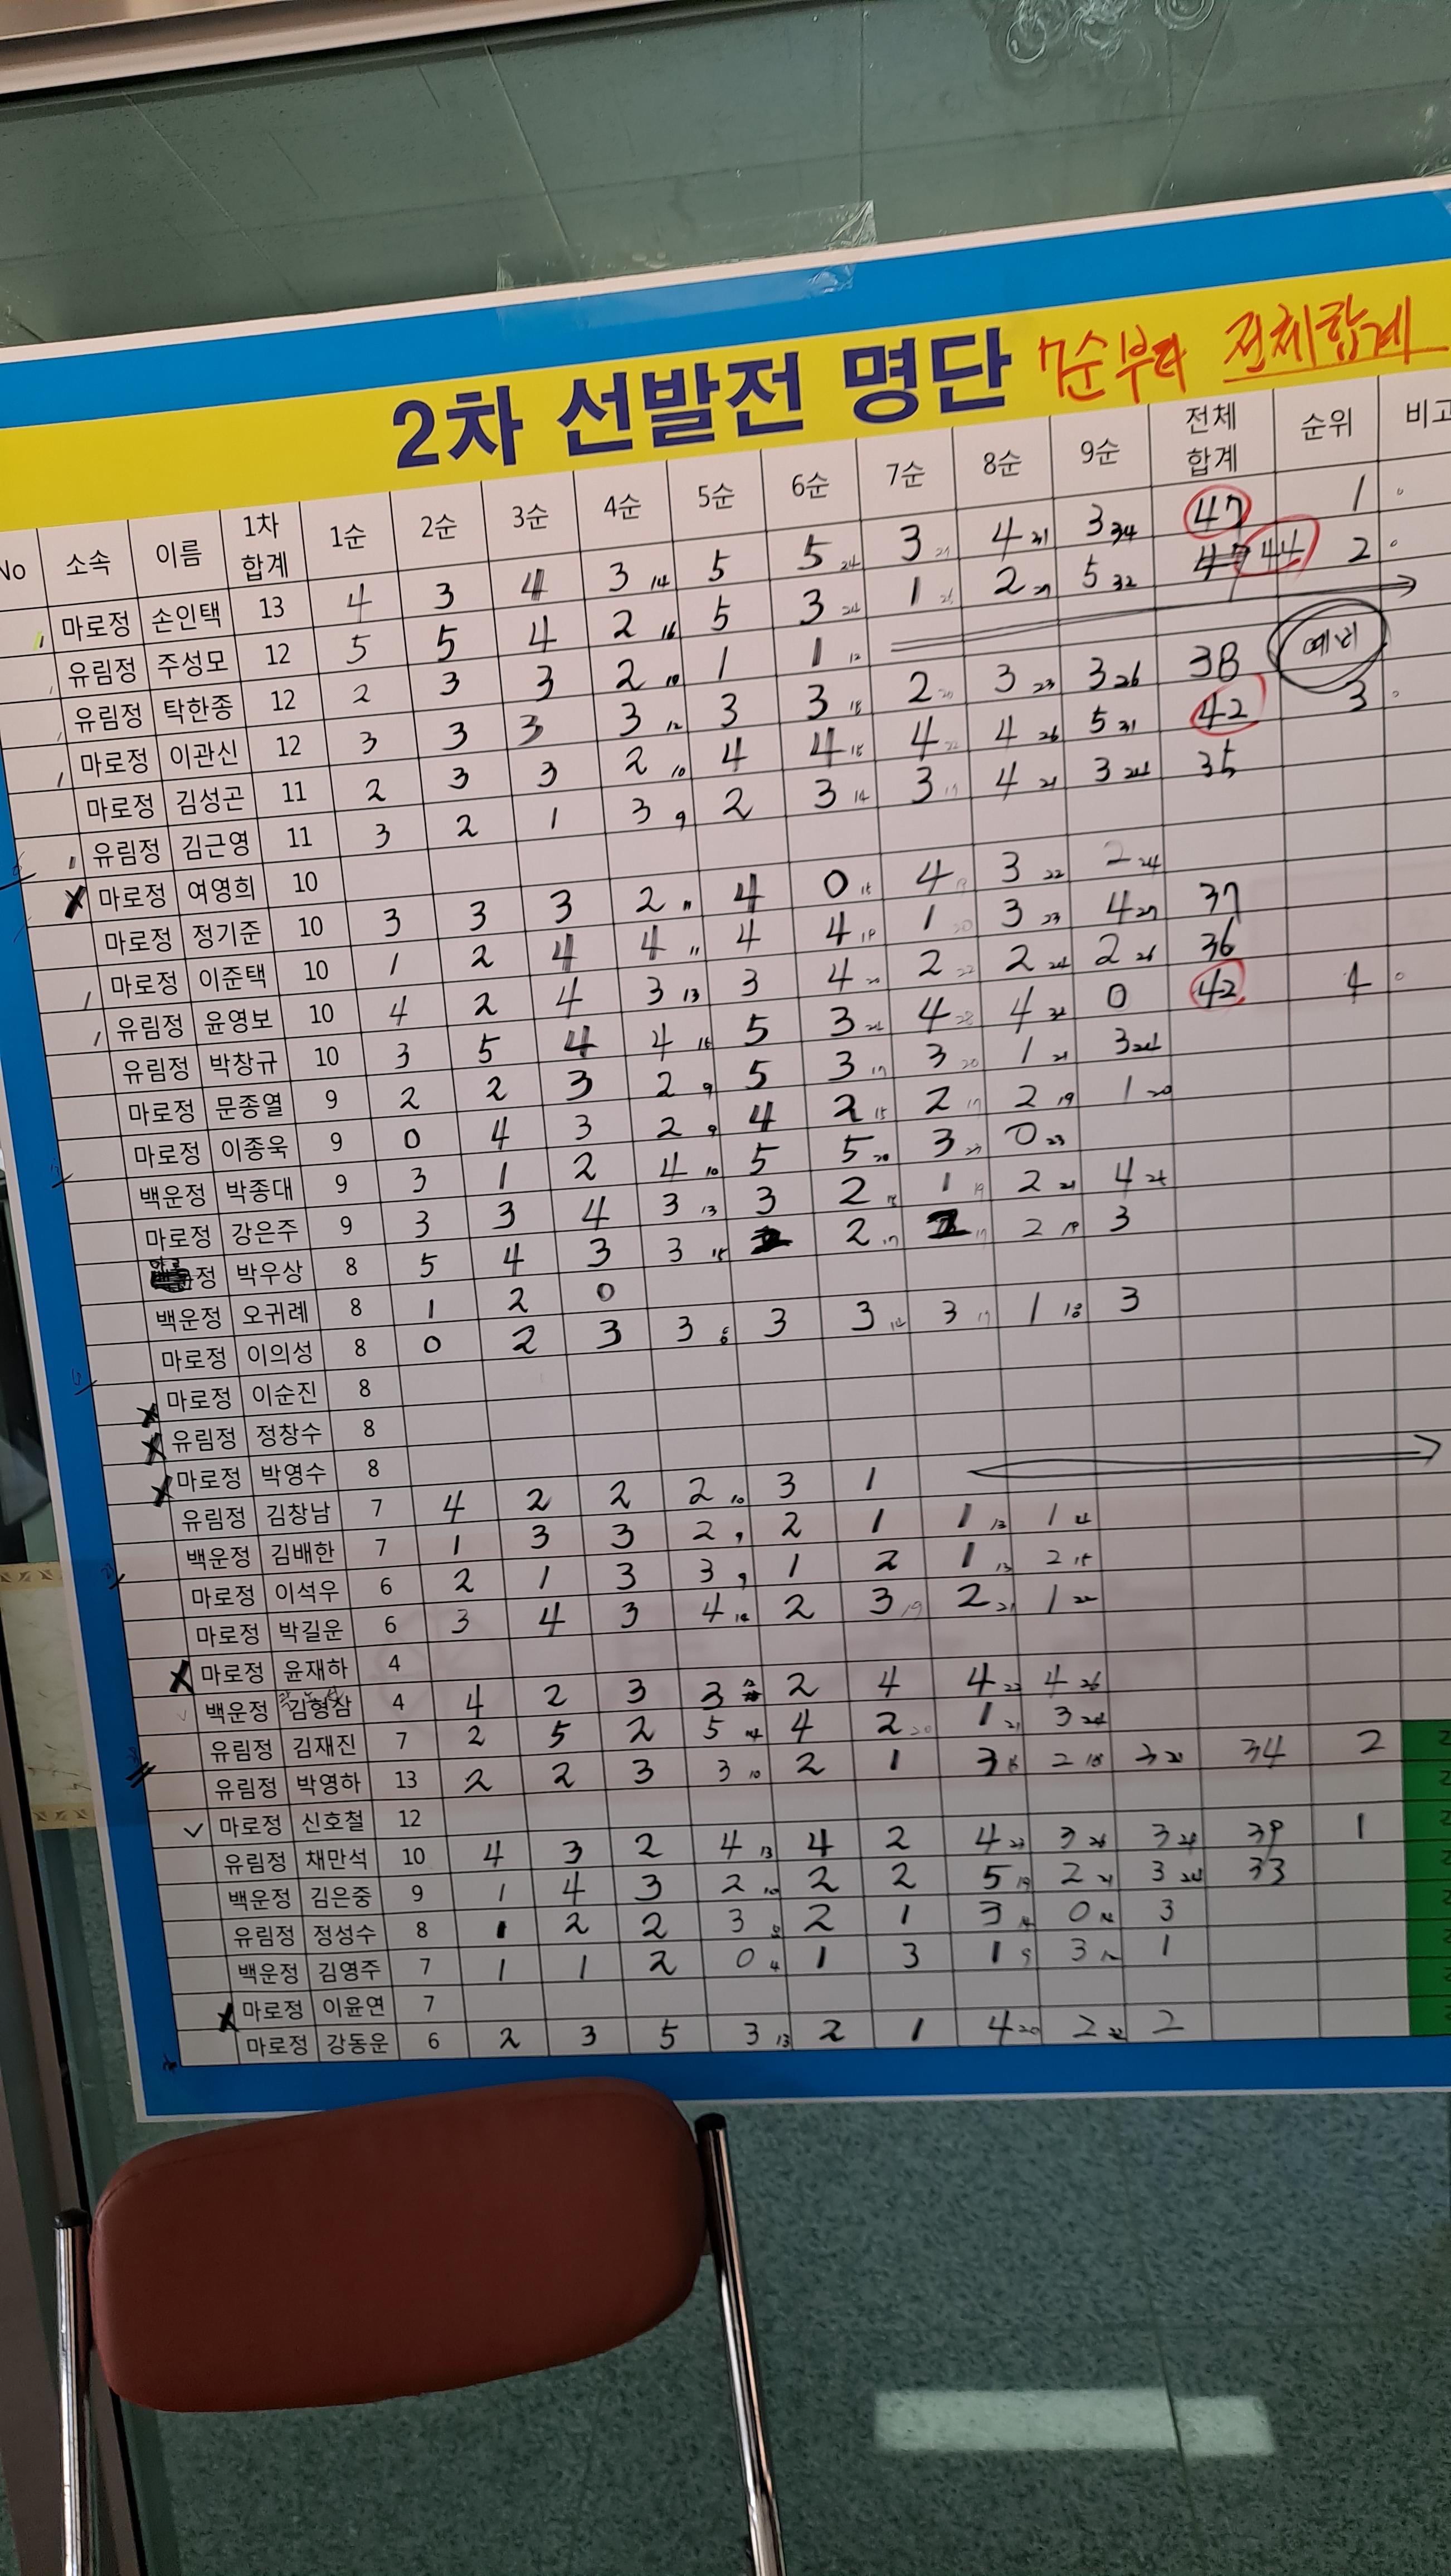 2차 선발전 명단 7순부터 전체합계
No 소속 이름 1차 합계 1순 2순 3순 4순 5순 6순 7순 8순 9순 전체 합계 순위 비고
마로정 손인택 13 4 3 4 3 14 5 5 24 3 27 4 31 3 34 47 1
유림정 주성모 12 5 5 4 2 16 5 3 24 1 25 2 27 5 32 44 2
유림정 탁한종 12 2 3 3 2 10 1 1 12
마로정 이관신 12 3 3 3 3 12 3 3 18 2 20 3 23 3 26 38 예비
마로정 김성곤 11 2 3 3 2 10 4 4 18 4 22 4 26 5 31 42 3
유림정 김근영 11 3 2 1 3 9 2 3 14 3 17 4 21 3 24 35
마로정 여영희 10
마로정 정기준 10 3 3 3 2 11 4 0 15 4 19 3 22 2 24
마로정 이준택 10 1 2 4 4 11 4 4 19 1 20 3 23 4 27 37
유림정 윤영보 10 4 2 4 3 13 3 4 20 2 22 2 24 2 26 36
유림정 박창규 10 3 5 4 4 16 5 3 24 4 28 4 32 0 42 4
마로정 문종열 9 2 2 3 2 9 5 3 17 3 20 1 21 3 24
마로정 이종욱 9 0 4 3 2 9 4 2 15 2 17 2 19 1 20
백운정 박종대 9 3 1 2 4 10 5 5 20 3 23 0 23
마로정 강은주 9 3 3 4 3 13 3 2 18 1 19 2 21 4 25
마로정 박우상 8 5 4 3 3 15 2 17 17 2 19 3
백운정 오귀례 8 1 2 0
마로정 이의성 8 0 2 3 3 8 3 3 14 3 17 1 18 3
마로정 이순진 8
유림정 정창수 8
마로정 박영수 8
유림정 김창남 7 4 2 2 2 10 3 1
백운정 김배한 7 1 3 3 2 9 2 1 1 13 1 14
마로정 이석우 6 2 1 3 3 9 1 2 1 13 2 15
마로정 박길운 6 3 4 3 4 14 2 3 19 2 21 1 22
마로정 윤재하 4
백운정 김형삼 4 4 2 3 3 2 4 4 22 4 26
유림정 김재진 7 2 5 2 5 14 4 2 20 1 21 3 24
유림정 박영하 13 2 2 3 3 10 2 1 3 16 2 18 3 21 34 2
마로정 신호철 12
유림정 채만석 10 4 3 2 4 13 4 2 4 23 3 26 3 29 39 1
백운정 김은중 9 1 4 3 2 10 2 2 5 19 2 21 3 24 33
유림정 정성수 8 1 2 2 3 8 2 1 3 14 0 14 3
백운정 김영주 7 1 1 2 0 4 1 3 1 9 3 12 1
마로정 이윤연 7
마로정 강동운 6 2 3 5 3 13 2 1 4 20 2 22 2